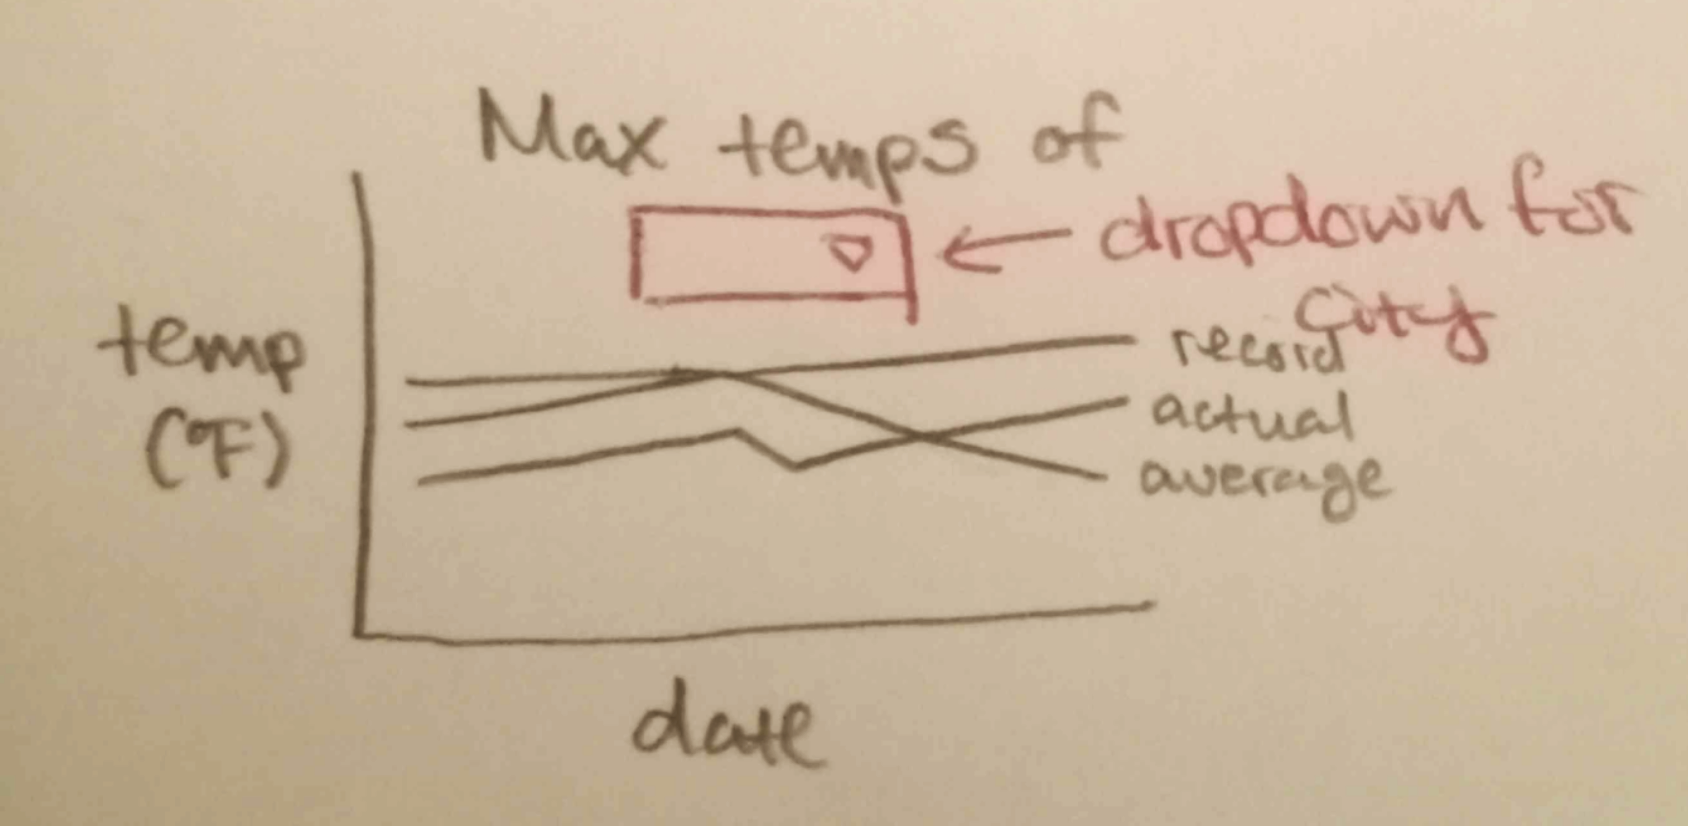 Max temps of
dropdown for
city
temp
(°F)
record
actual
average
date